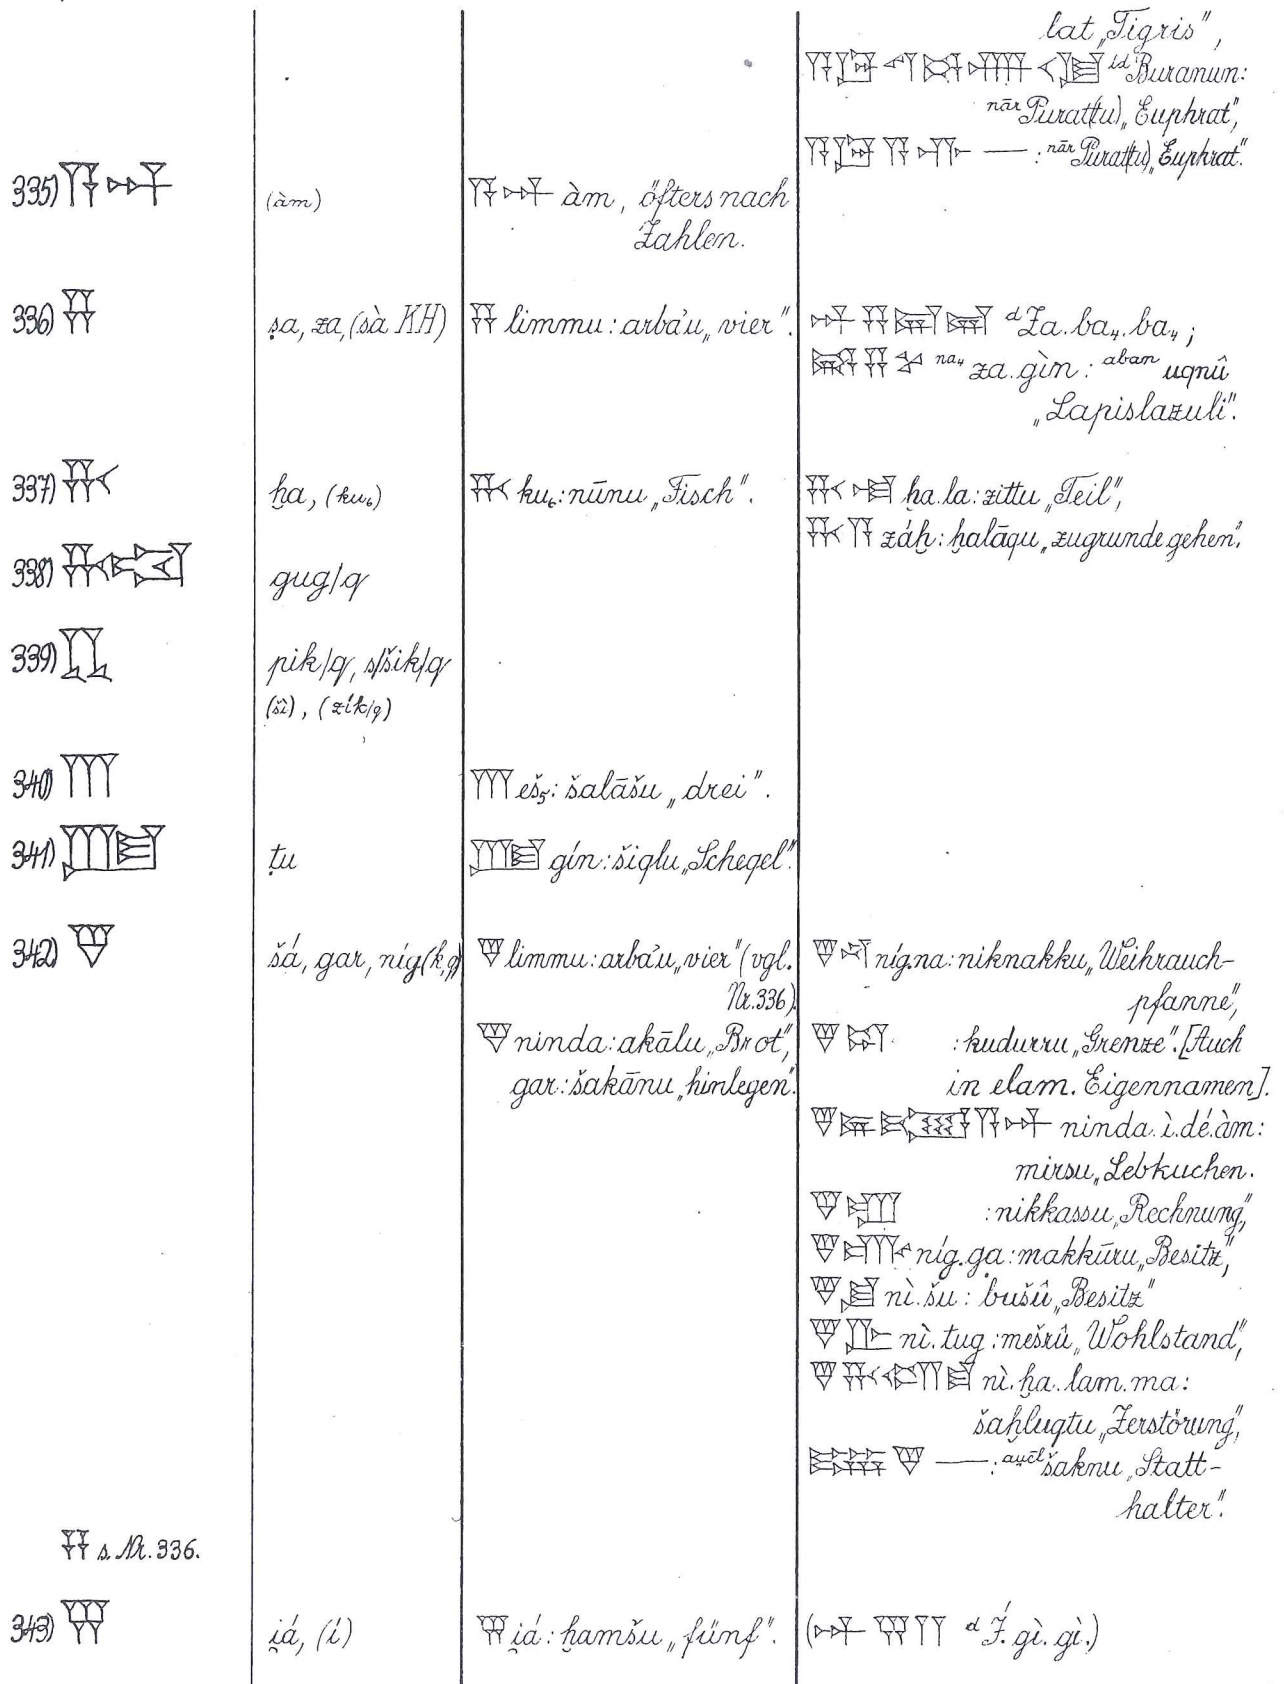 lat „Tigris",
𒀀𒇉𒌓𒄒𒉣𒆠 ⁱᵈBuranun:
nārPurat(tu) „Euphrat",
𒀀𒇉𒀀 — : nārPurat(tu) „Euphrat".
335) 𒀀𒀭
(àm)
𒀀𒀭 àm, öfters nach
Zahlen.
336) 𒍝
ṣa, za, (sà KH)
𒍝 limmu: arba'u „vier".
𒀭𒍝𒂷𒂷 ᵈZa.ba₄.ba₄;
𒎎𒍝𒆳 na₄ za.gìn: aban uqnû
„Lapislazuli".
337) 𒄩
ḫa, (ku₆)
𒄩 ku₆: nūnu „Fisch".
𒄩𒆷 ḫa.la: zittu „Teil",
𒄩𒀀 záḫ: ḫalāqu „zugrunde gehen".
338)
gug/q
339) 𒋝
pik/q, s/šik/q
(šì), (zík/q)
340) 𒐈
𒐈 eš₅: šalāšu „drei".
341) 𒂆
ṭu
𒂆 gín: šiqlu „Scheqel".
342) 𒃻
šá, gar, níg(k,q)
𒃻 limmu: arba'u „vier" (vgl.
Nr. 336).
𒃻 ninda: akālu „Brot",
gar: šakānu „hinlegen".
𒃻𒈾 níg.na: niknakku „Weihrauch-
pfanne",
𒃻𒁺 : kudurru „Grenze". [Auch
in elam. Eigennamen].
𒃻𒉌𒌤𒀀𒀭 ninda.ì.dé.àm:
mirsu „Lebkuchen.
𒃻𒋃 : nikkassu „Rechnung",
𒃻𒂵 níg.ga: makkūru „Besitz",
𒃻𒋗 nì.šu: bušû „Besitz"
𒃻𒌇 nì.tug: mešrû „Wohlstand",
𒃻𒄩𒇴𒈠 nì.ḫa.lam.ma:
šaḫluqtu „Zerstörung",
𒇽𒃻 — : au̯ēlšaknu „Statt-
halter".
𒍝 s. Nr. 336.
343) 𒐊
i̯á, (í)
𒐊 i̯á: ḫamšu „fünf".
(𒀭𒐊𒈫 ᵈÍ.gì.gì.)